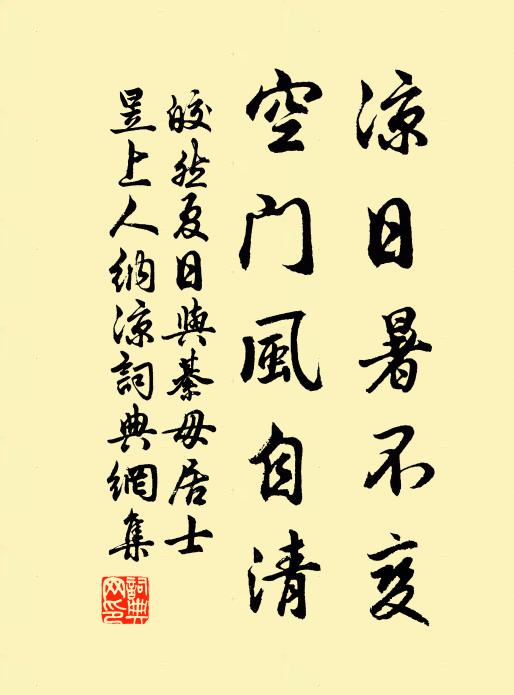 凉日暑不變
空門風自清
皎然夏日與綦毋居士
昱上人納凉詞典網集
詞典網印